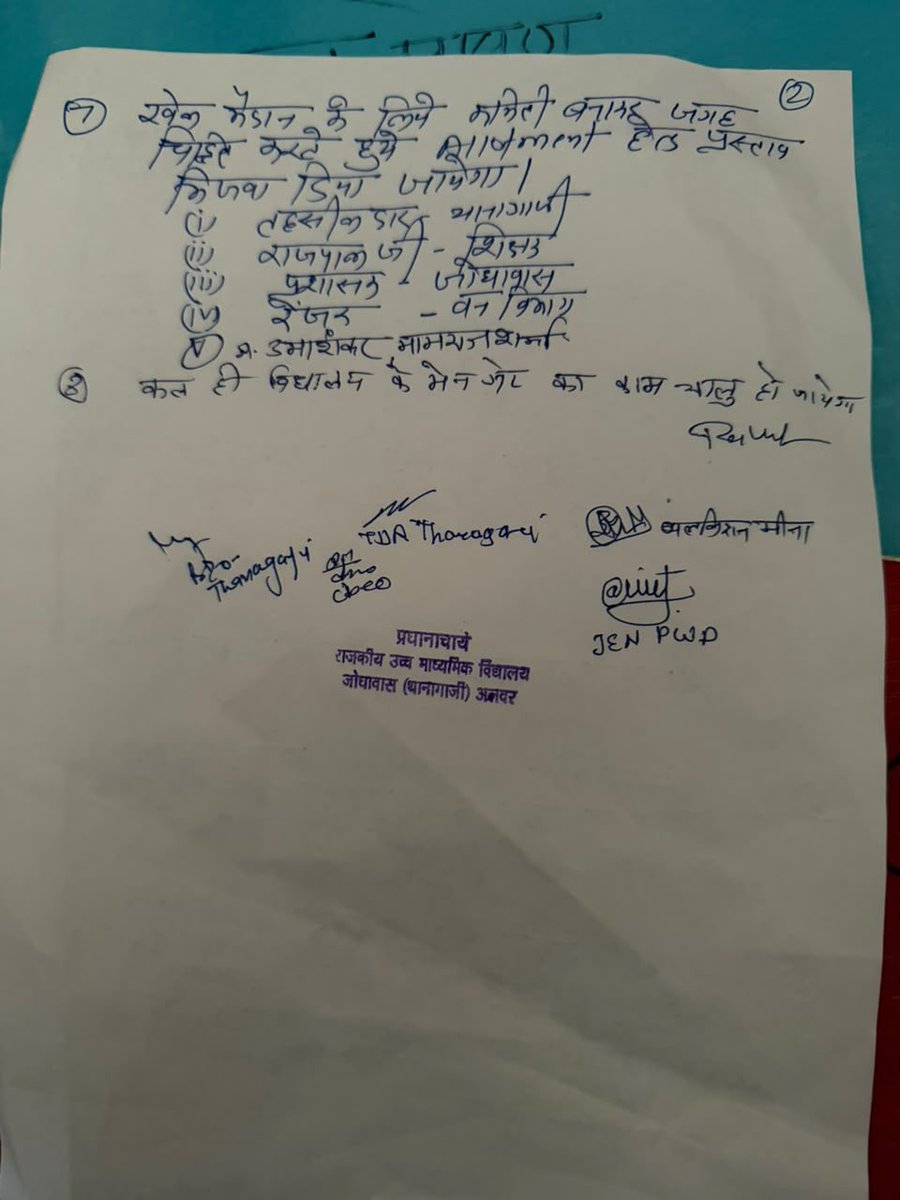 ②
⑦ खेल मैदान के लिये कमिटी बनाकर जगह
चिह्नित करते हुये हेतु प्रस्ताव
भिजवा दिया जायेगा।
(i) तहसीलदार थानागाजी
(ii) राजपाल जी - शिक्षक
(iii) प्रशासक - जोधावास
(iv) रेंजर - वन विभाग
(v) उमाशंकर, शर्मा
⑧ कल ही विधालय के मेन गेट का काम चालु हो जायेगा
TDR Thanagazi
Thanagazi
CBEO
बलकिशन मीना
JEN PWD
प्रधानाचार्य
राजकीय उच्च माध्यमिक विद्यालय
जोधावास (थानागाजी) अलवर